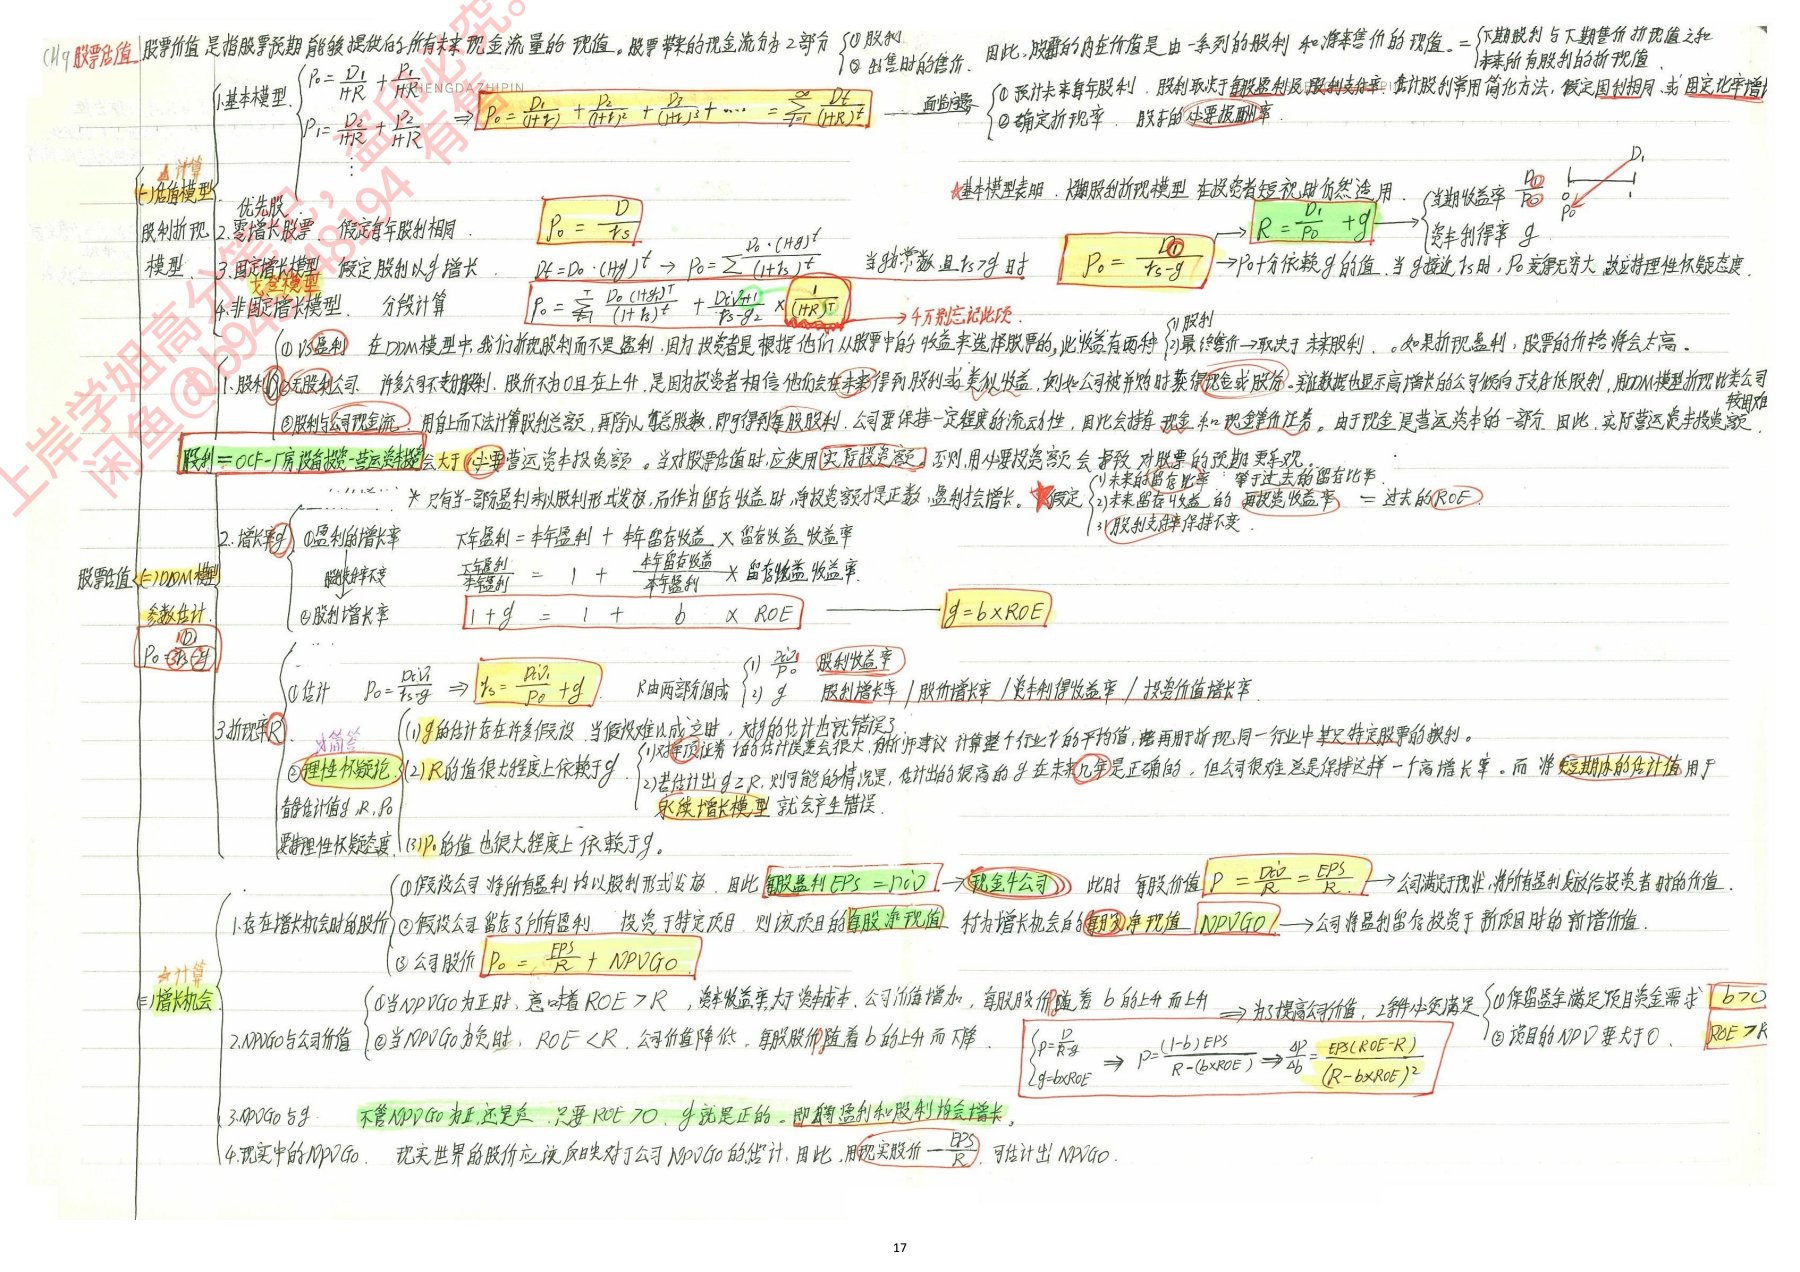 CH9 股票估值 股票价值是指股票预期能够提供的所有未来现金流量的现值。股票带来的现金流分为2部分 ①股利 ②出售时的售价. 因此,股票的内在价值是由一系列的股利和将来售价的现值。= 下期股利与下期售价折现值之和 未来所有股利的折现值
上岸学姐高分笔记,盗印必究。
闲鱼@b94048194 有售
CHENGDAZHIPIN
股票估值
△计算
(一)估值模型
股利折现模型
1.基本模型
P₀ = D₁/(1+R) + P₁/(1+R)
P₁ = D₂/(1+R) + P₂/(1+R)
⋮
⇒ P₀ = D₁/(1+r) + D₂/(1+r)² + D₃/(1+r)³ + …… = ∑ Dt/(1+R)^t
面临问题 ①预计未来每年股利. 股利取决于每股盈利及股利支付率. 估计股利常用简化方法, 假定固利相同. 或固定比率增
②确定折现率. 股东的必要报酬率.
★基本模型表明. 长期股利折现模型 在投资者短视时仍然适用.
优先股
2.零增长股票 假定每年股利相同. P₀ = D/rs
3.固定增长模型 假定股利以g增长. Dt = D₀·(1+g)^t → P₀ = ∑ D₀·(1+g)^t/(1+rs)^t 当g为常数且rs>g时 P₀ = D₁/(rs-g)
戈登模型
→ R = D₁/P₀ + g → 当期收益率 D₁/P₀ 资本利得率 g
D₁ 0 P₀
→ P₀十分依赖g的值. 当g接近rs时, P₀变得无穷大 故应持理性怀疑态度.
4.非固定增长模型. 分段计算 P₀ = ∑ D₀(1+g₁)^T/(1+rs)^t + DivT+1/(rs-g₂) × 1/(1+R)^T → 千万别忘记此项.
(二)DDM模型
参数估计
P₀ = D/(rs-g)
1.股利D
①VS盈利 在DDM模型中,我们折现股利而不是盈利,因为投资者是根据他们从股票中的收益来选择股票的,此收益有两种 (1)股利 (2)最终售价→取决于未来股利. 。如果折现盈利,股票的价格将会太高。
②无股利公司. 许多公司不支付股利, 股价不为0且在上升, 是因为投资者相信他们会在未来得到股利或类似收益, 例如公司被并购时获得现金或股份. 实证数据也显示高增长的公司倾向于支付低股利, 用DDM模型折现此类公司
③股利与公司现金流. 用自上而下法计算股利总额, 再除以总股数, 即可得到每股股利. 公司要保持一定程度的流动性, 因此会持有现金和现金等价证券。由于现金是营运资本的一部分. 因此, 实际营运资本投资额
股利=OCF-厂房设备投资-营运资本投资 会大于必要营运资本投资额。当对股票估值时,应使用实际投资额. 否则,用必要投资额会导致对股票的预期更乐观。
* 只有当一部分盈利未以股利形式发放, 而作为留存收益时, 净投资额才是正数, 盈利才会增长。★假定 1)未来的留存比率 等于过去的留存比率. 2)未来留存收益的再投资收益率 = 过去的ROE. 3)股利支付率保持不变.
2.增长率g
①盈利的增长率 下年盈利=本年盈利+本年留存收益×留存收益收益率
股利支付率不变 下年盈利/本年盈利 = 1 + 本年留存收益/本年盈利 × 留存收益收益率.
②股利增长率 1+g = 1 + b × ROE —— g=b×ROE
3.折现率R
①估计 P₀ = Div₁/(rs-g) ⇒ rs = Div₁/P₀ + g. R由两部分组成 1) Div₁/P₀ 股利收益率 2) g 股利增长率/股价增长率/资本利得收益率/投资价值增长率
②理性怀疑论 看待估计值g.R.P₀ 要持理性怀疑态度.
(1) g的估计存在许多假设. 当假设难以成立时, 对g的估计也就错误了
(2) R的值很大程度上依赖于g.
1)对单项证券r的估计误差会很大, 有分析师建议计算整个行业r的平均值, 然后再用于折现同一行业中某只特定股票的股利。
2)若估计出g≥R, 则可能的情况是, 估计出的很高的g在未来几年是正确的, 但公司很难总是保持这样一个高增长率。而将短期内的估计值用于永续增长模型就会产生错误.
(3) P₀的值也很大程度上依赖于g。
☆计算
(三)增长机会
1.存在增长机会时的股价
①假设公司将所有盈利均以股利形式发放. 因此每股盈利EPS=Div → 现金牛公司 此时 每股价值 P = Div/R = EPS/R. → 公司满足于现状,将所有盈利发放给投资者时的价值.
②假设公司留存了所有盈利 投资于特定项目. 则该项目的每股净现值 称为增长机会的每股净现值 NPVGO → 公司将盈利留存投资于新项目时的新增价值.
③公司股价 P₀ = EPS/R + NPVGO
2.NPVGO与公司价值
①当NPVGO为正时, 意味着ROE>R, 资本收益率大于资本成本. 公司价值增加, 每股股价随着b的上升而上升
②当NPVGO为负时, ROE<R. 公司价值降低, 每股股价随着b的上升而下降.
⇒ 为了提高公司价值, 2条件必须满足 ①保留盈余满足项目资金需求 b>0 ②项目的NPV要大于0. ROE>R
P = D/(R-g) g=b×ROE ⇒ P = (1-b)EPS/(R-(b×ROE)) ⇒ ΔP/Δb = EPS(ROE-R)/(R-b×ROE)²
3.NPVGO与g 不管NPVGO为正还是负. 只要ROE>0. g就是正的。即每股盈利和股利均会增长。
4.现实中的NPVGO. 现实世界的股价应该反映对于公司NPVGO的估计. 因此. 用现实股价 - EPS/R. 可估计出NPVGO.
17